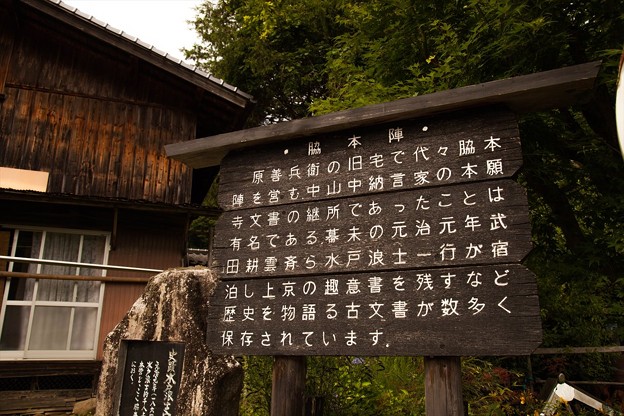 ・脇本陣・
原善兵衛の旧宅で代々脇本
陣を営む.中山中納言家の本願
寺文書の継所であったことは
有名である.幕末の元治元年武
田耕雲斉ら水戸浪士一行が宿
泊し上京の趣意書を残すなど
歴史を物語る古文書が数多く
保存されています.